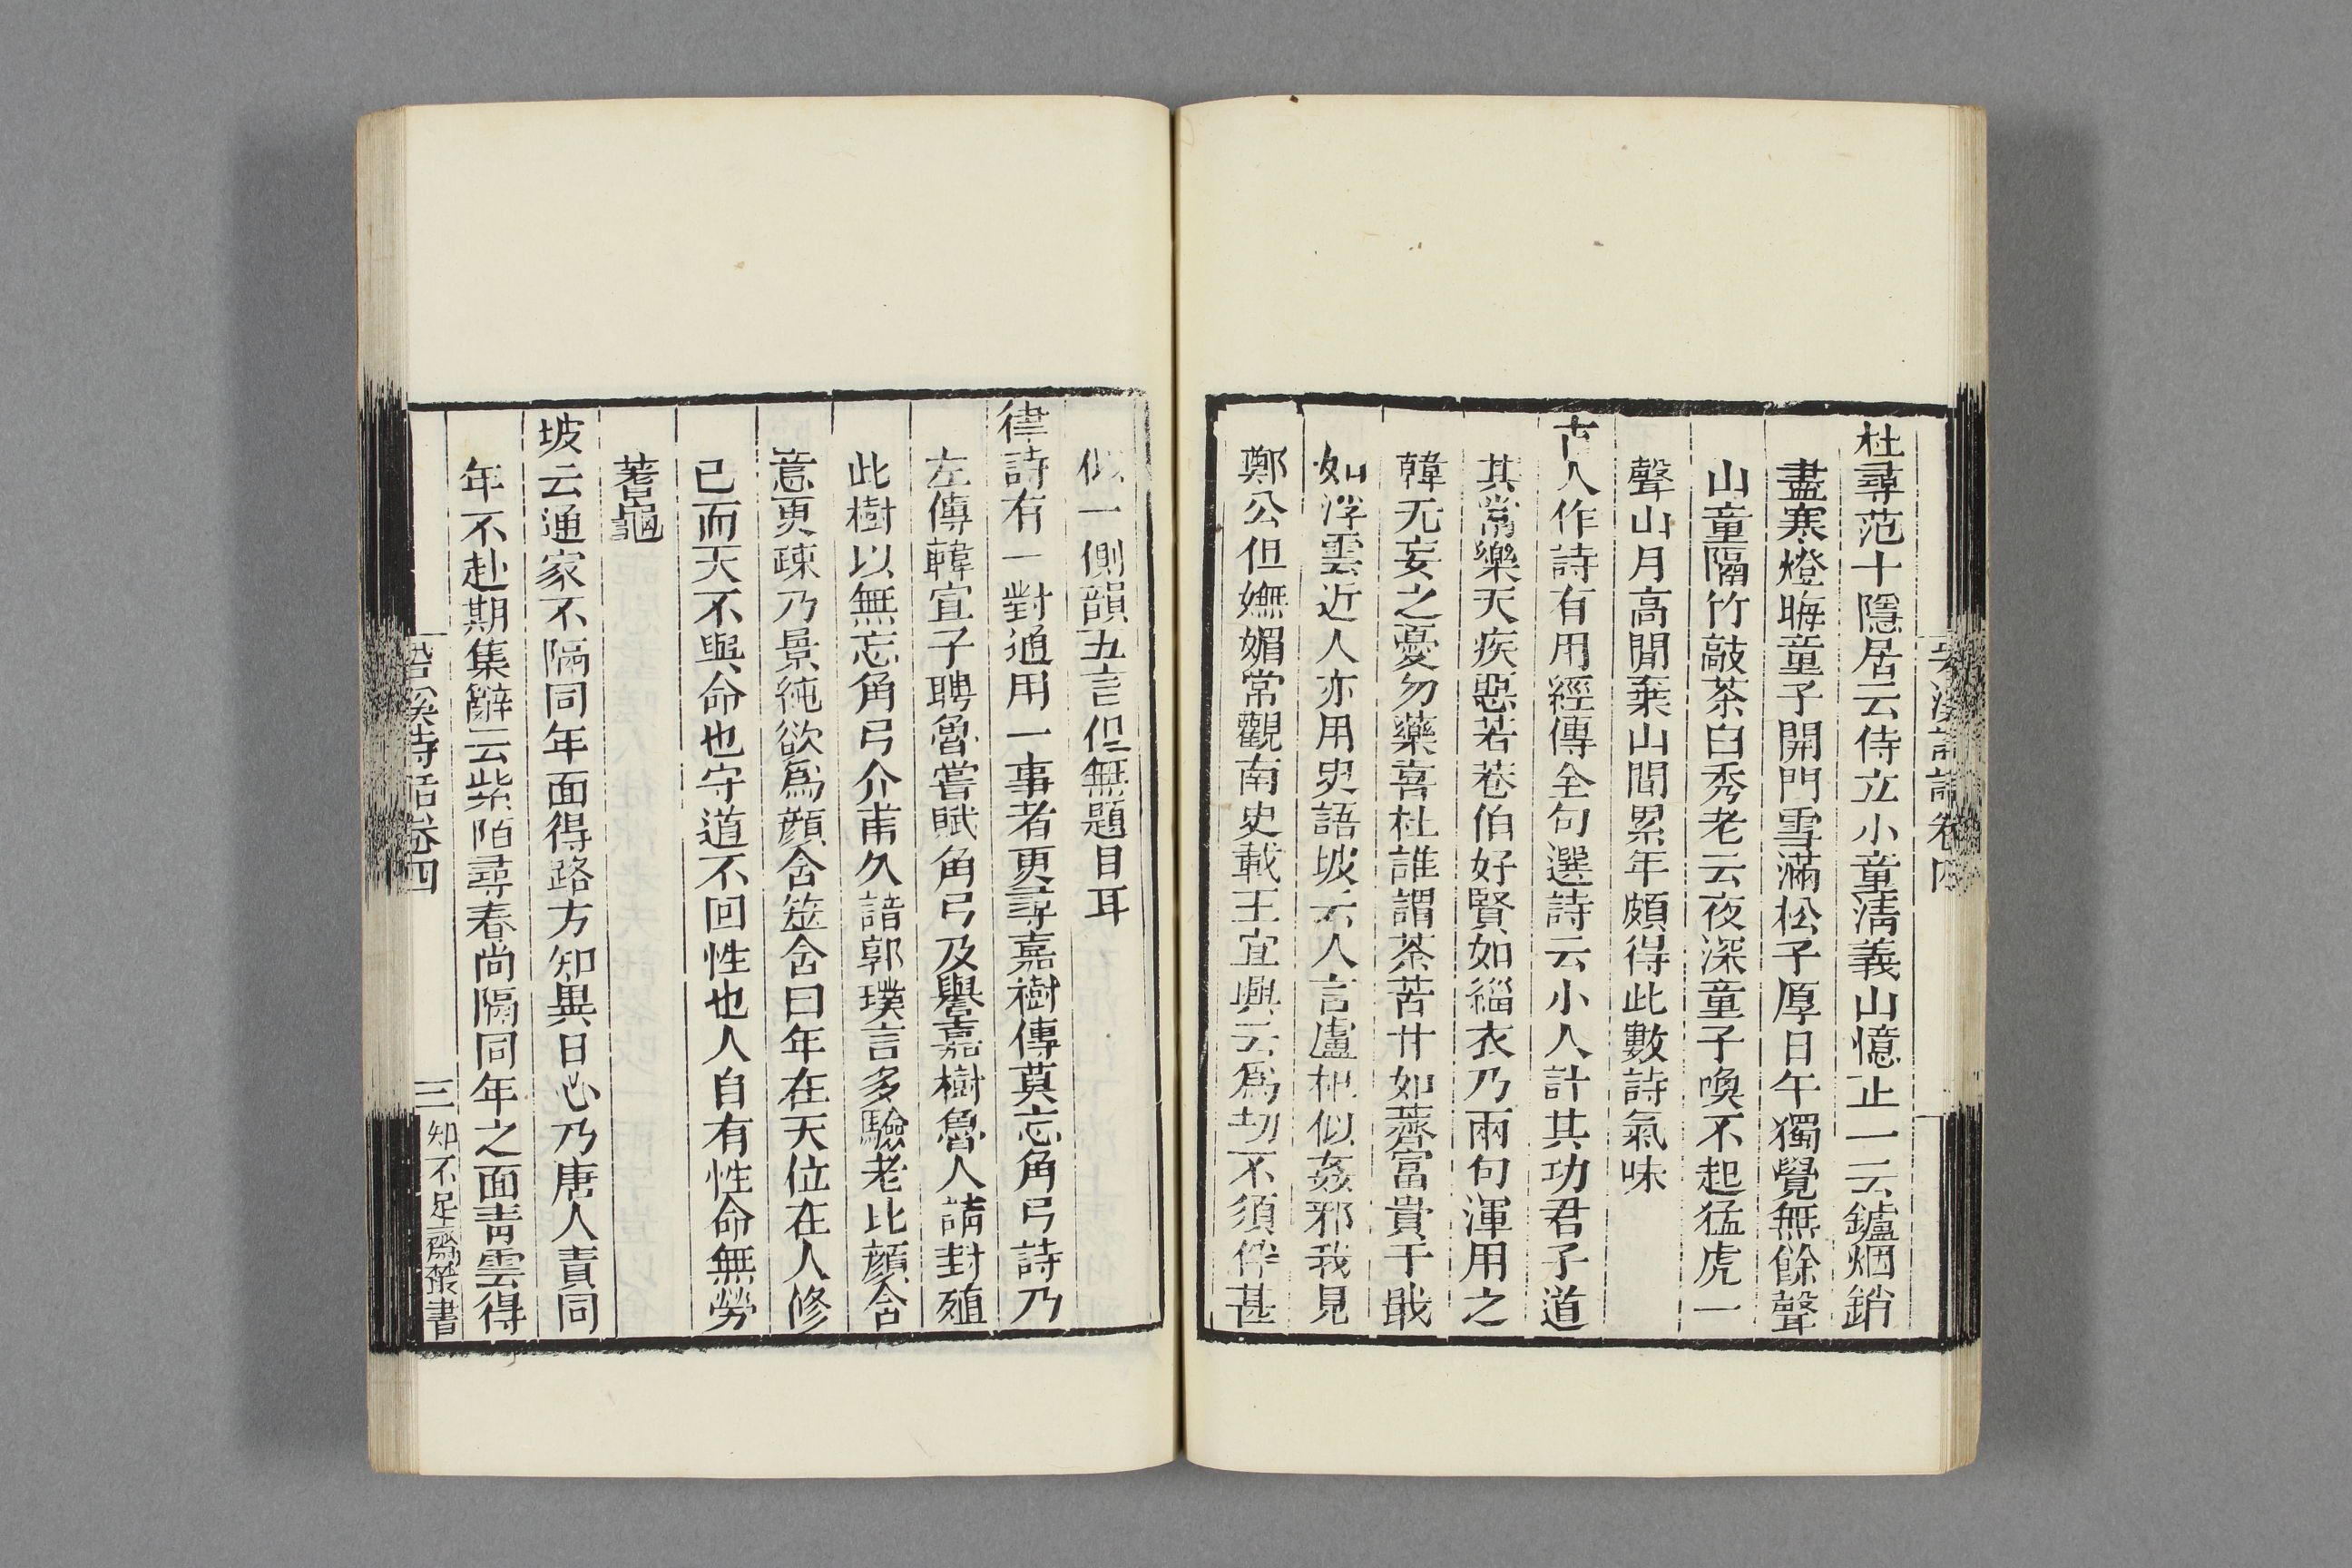 杜尋范十隱居云侍立小童淸義山憶正一云鑪烟銷
盡寒燈晦童子開門雪滿松子厚日午獨覺無餘聲
山童隔竹敲茶臼秀老云夜深童子喚不起猛虎一
聲山月高閒棄山間累年頗得此數詩氣味
古人作詩有用經傳全句選詩云小人計其功君子道
其常樂天疾惡若巷伯好賢如緇衣乃兩句渾用之
韓无妄之憂勿藥喜杜誰謂荼苦甘如薺富貴于我
如浮雲近人亦用史語坡云人言盧杞似姦邪我見
鄭公但嫵媚常觀南史載王宜興云爲劫不須伴甚
似一側韻五言但無題目耳
律詩有一對通用一事者更尋嘉樹傳莫忘角弓詩乃
左傳韓宣子聘魯嘗賦角弓及譽嘉樹魯人請封殖
此樹以無忘角弓介甫久諳郭璞言多驗老比顔含
意更疎乃景純欲爲顔含筮含曰年在天位在人修
已而天不與命也守道不回性也人自有性命無勞
蓍龜
坡云通家不隔同年面得路方知異日心乃唐人責同
年不赴期集辭云紫陌尋春尚隔同年之面靑雲得
䂬溪詩話卷四
三
知不足齋叢書